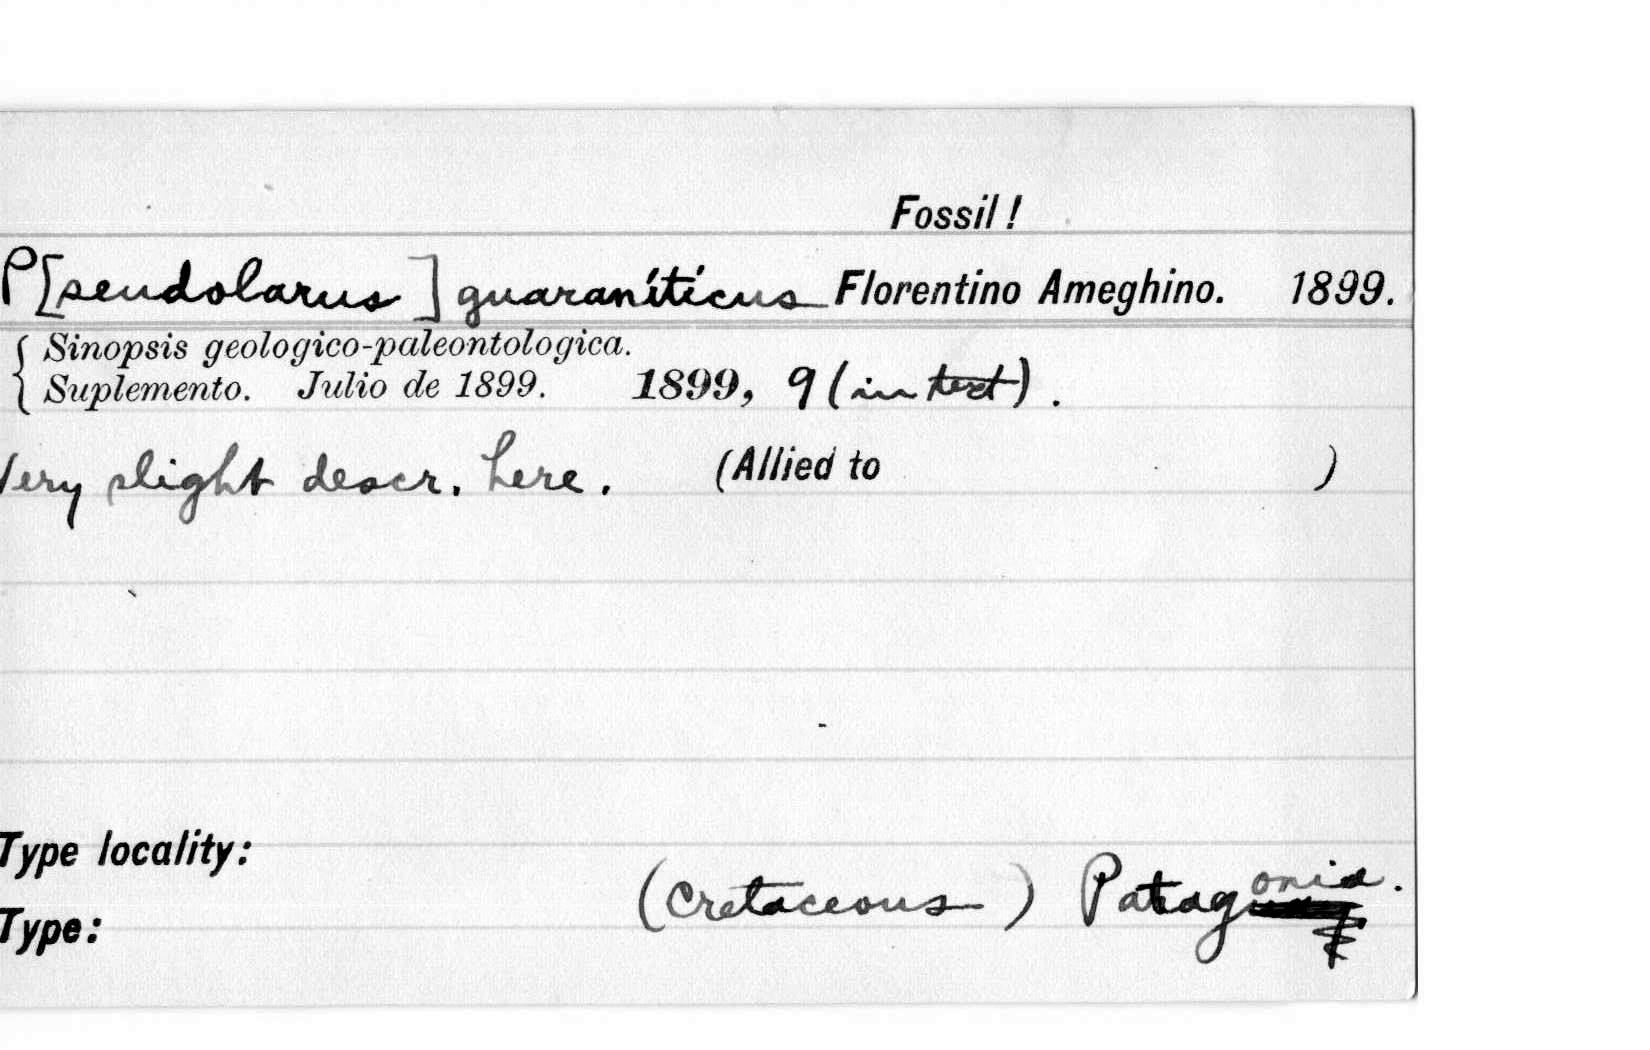 Fossil!
P[seudolarus ] guaraníticus Florentino Ameghino. 1899.
{ Sinopsis geologico-paleontologica.
Suplemento. Julio de 1899. 1899, 9 (in text).
Very slight descr. here. (Allied to )
Type locality:
(Cretaceous ) Patagonia.
Type: